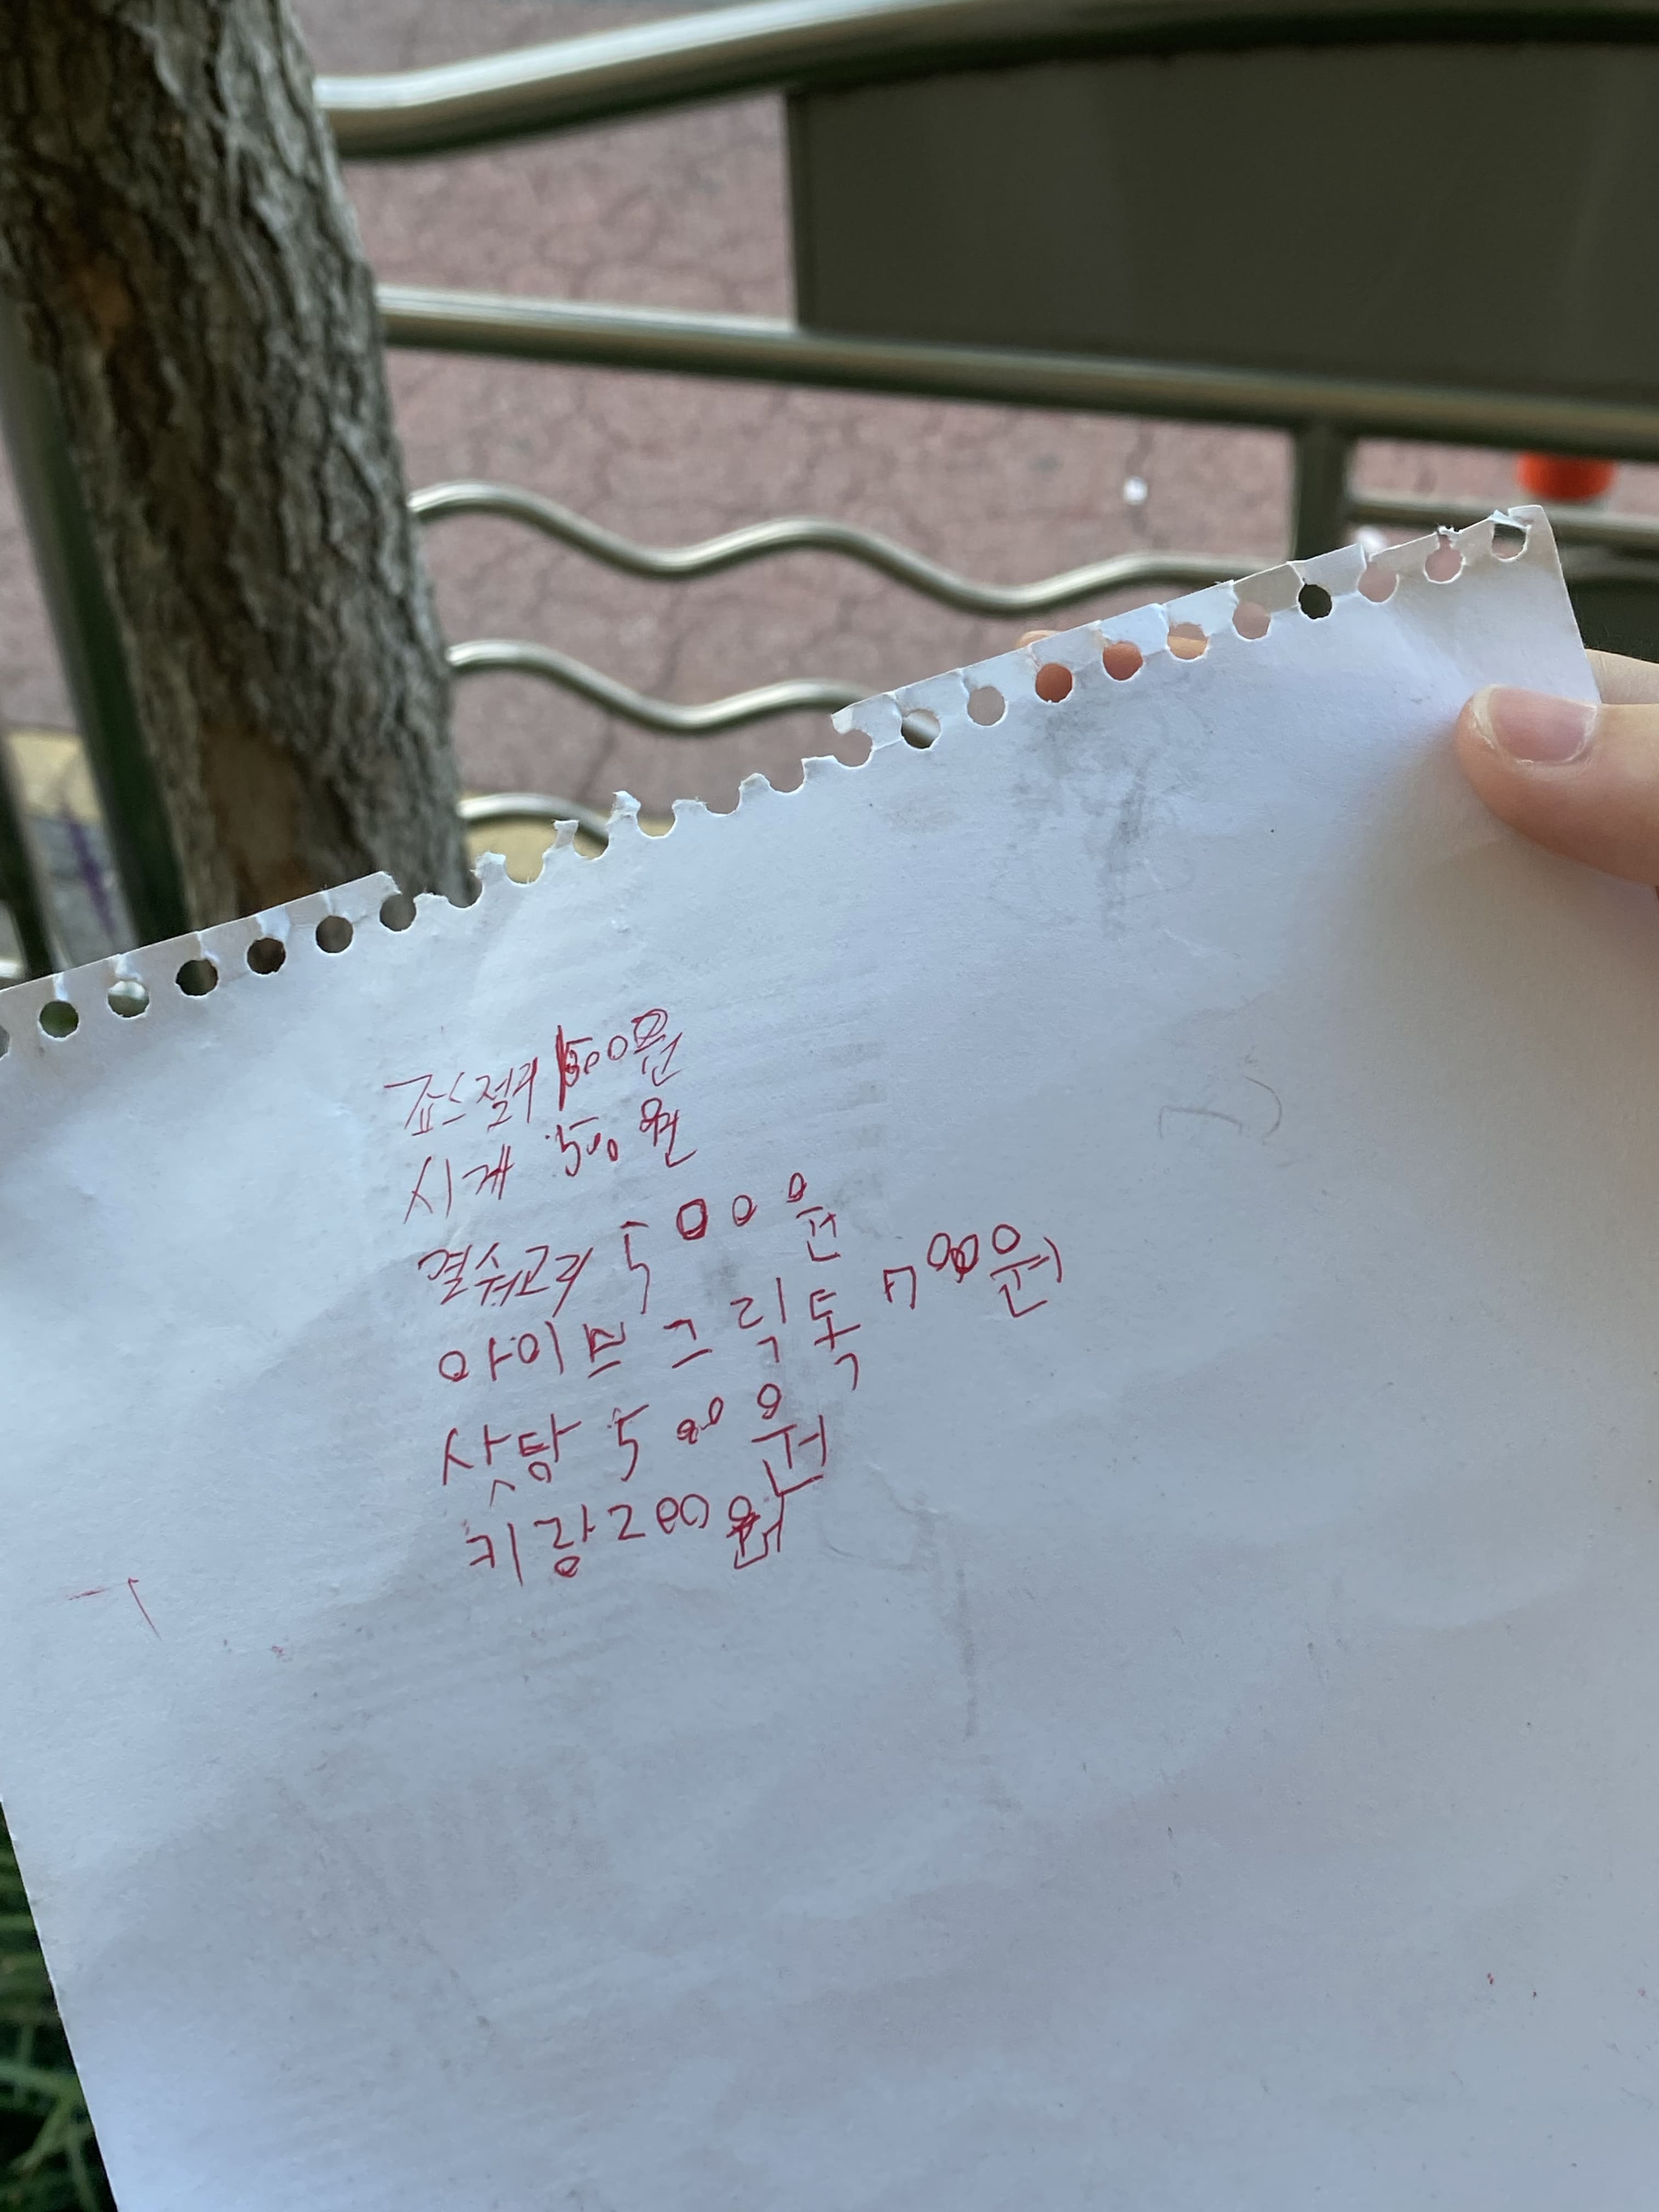 죠스젤리 500원
시계 500원
열쉬고리 500원
아이브 그 릭톡 700원
삿탕 500원
키링 200원